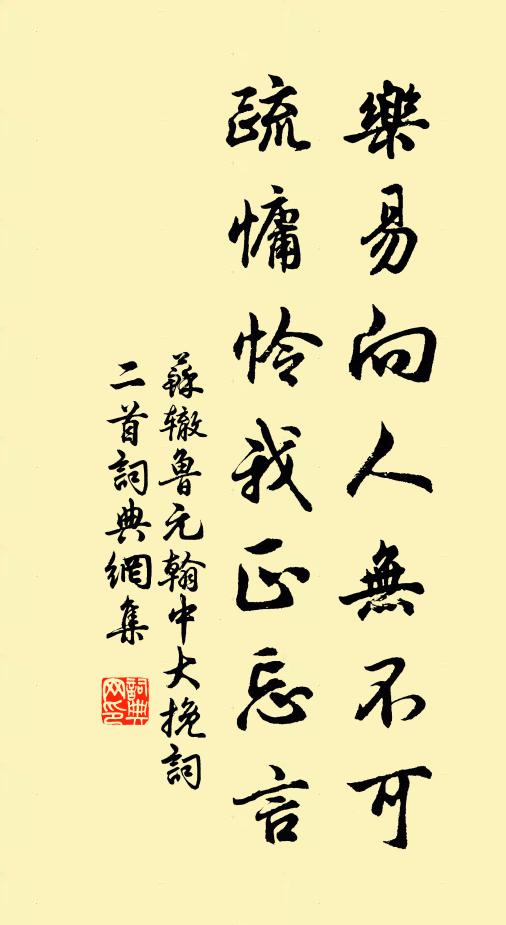 樂易向人無不可
疏慵怜我正忘言
蘇辙魯元翰中大挽詞
二首詞典網集
詞典
网印